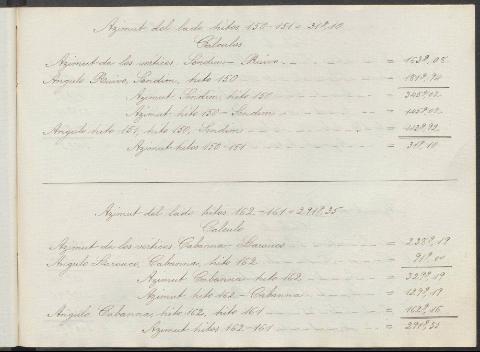 Azimut del lado hitos 150-151 = 31º,10
Calculos
Azimut de los vertices Sendim - Ruivo = 163º,08
Angulo Ruivo, Sendim, hito 150 = 181º,94
Azimut Sendim, hito 150 = 345º,02
Azimut hito 150 - Sendim = 165º,02
Angulo hito 151, hito 150, Sendim =
Azimut hitos 150-151 = 31º,10
Azimut del lado hitos 162-161 = 291º,35
Calculo
Azimut de los vertices Cabanna - Larouco = 238º,19
Angulo Larouco, Cabanna, hito 162 = 91º,00
Azimut Cabanna - hito 162 = 329º,19
Azimut hito 162 - Cabanna = 129º,19
Angulo Cabanna, hito 162, hito 161 = 162º,16
Azimut hitos 162-161 = 291º,35